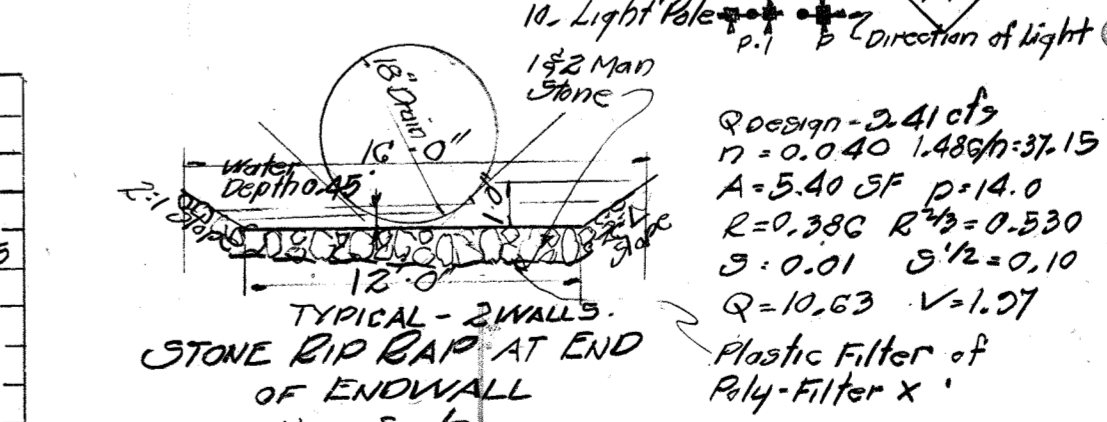 10. Light Pole
P.1 P Direction of Light
1 & 2 Man
Stone
18" Drain
16'-0"
Water
Depth 0.45'
2:1 Slope
1.0'
2:1
Slope
12'-0"
TYPICAL - 2 WALLS.
STONE RIP RAP AT END
OF ENDWALL
Q Design - 9.41 cfs
n = 0.040 1.486/n = 37.15
A = 5.40 SF p = 14.0
R = 0.386 R 2/3 = 0.530
S = 0.01 S 1/2 = 0.10
Q = 10.63 V = 1.97
Plastic Filter of
Poly-Filter X
5